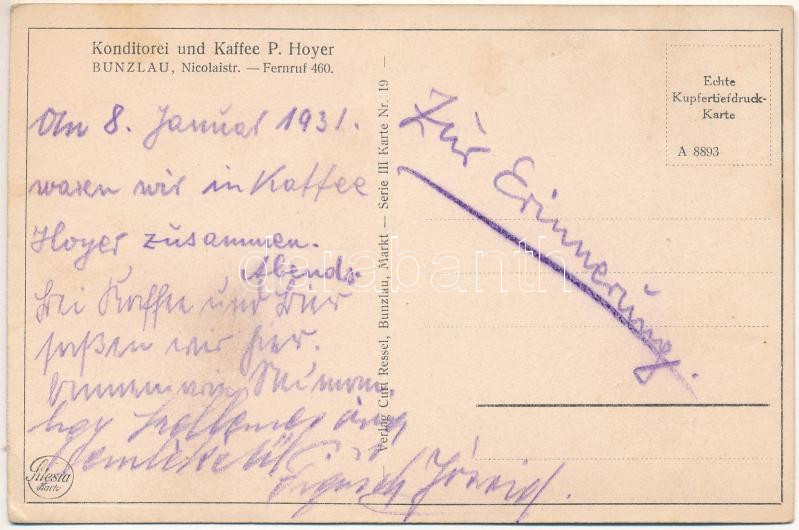 Konditorei und Kaffee P. Hoyer
BUNZLAU, Nicolaistr. — Fernruf 460.
Am 8. Januar 1931.
waren wir in Kaffee
Hoyer zusammen.
Abends
bei Kaffee und Bier
saßen wir hier.
Egy kellemes
emlékéül
Verlag Curt Ressel, Bunzlau, Markt — Serie III Karte Nr. 19 —
Zur Erinnerung.
Echte
Kupfertiefdruck-
Karte
A 8893
Silesia
Karte
darabanth